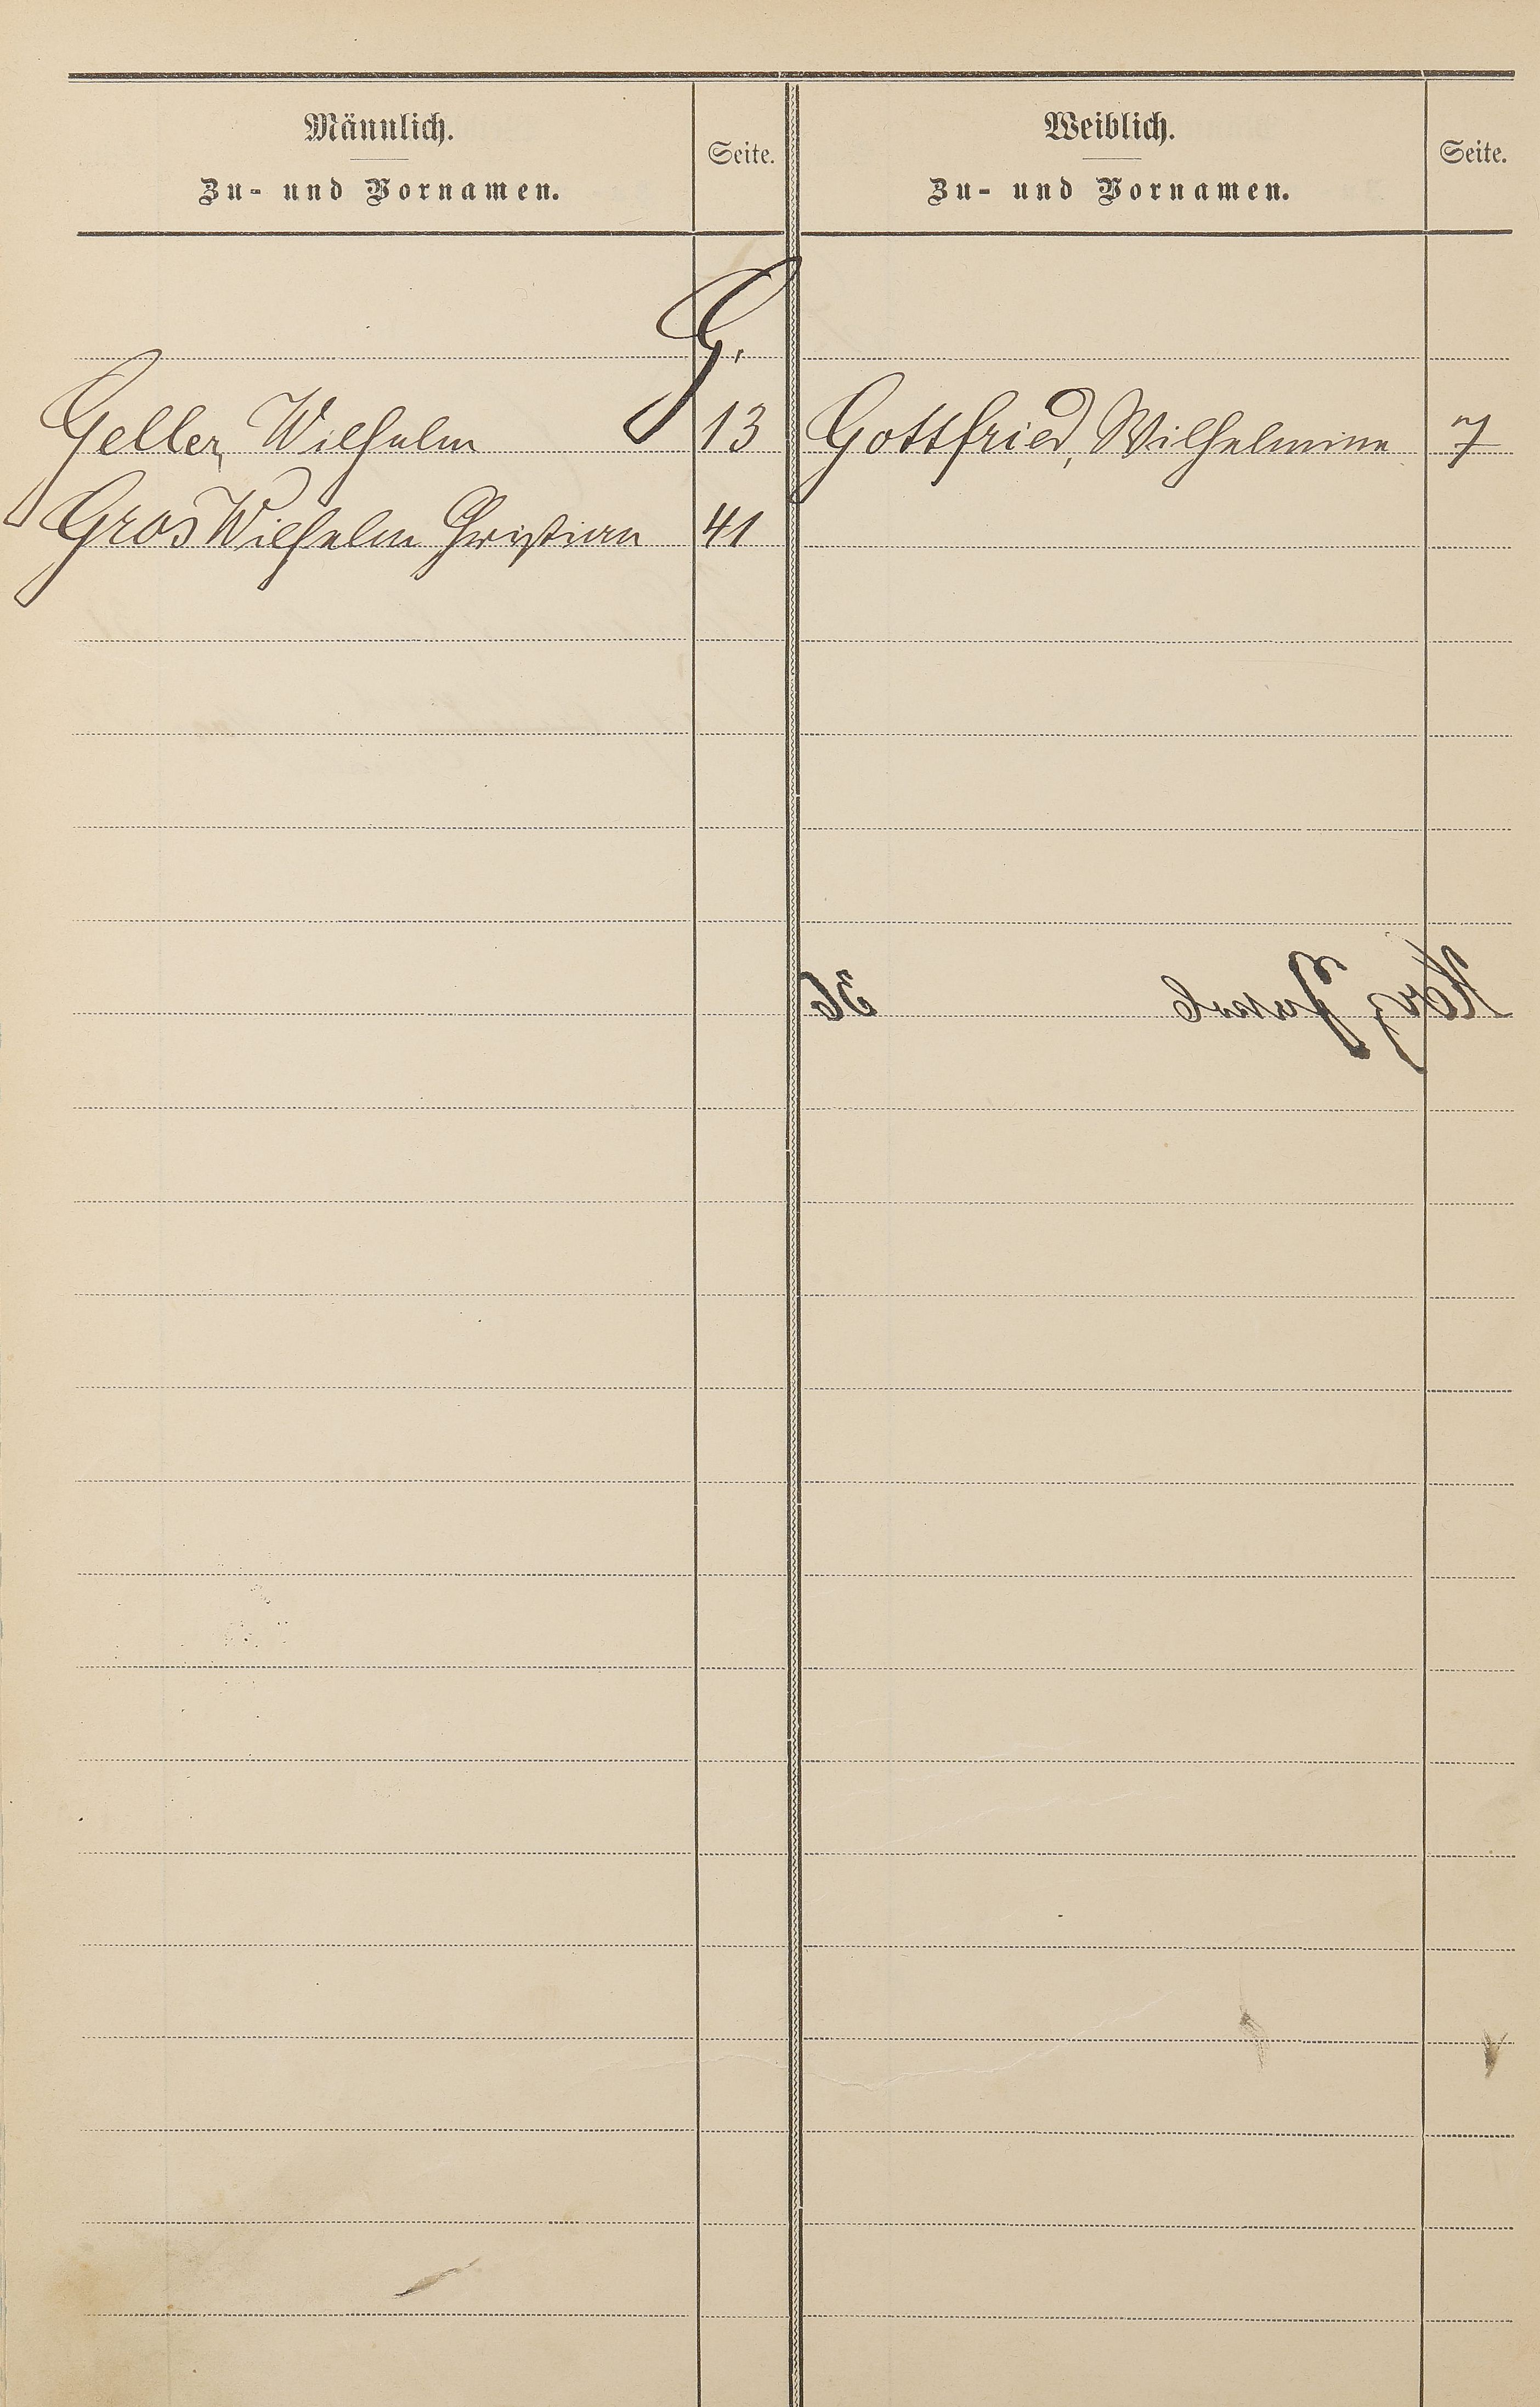 Männlich.
Zu- und Vornamen.
Seite.
Weiblich.
Zu- und Vornamen.
Seite.
G.
Geller, Wilhelm 13
Gottfried, Wilhelmine 7
Gros Wilhelm Christian 41
Jakob 36